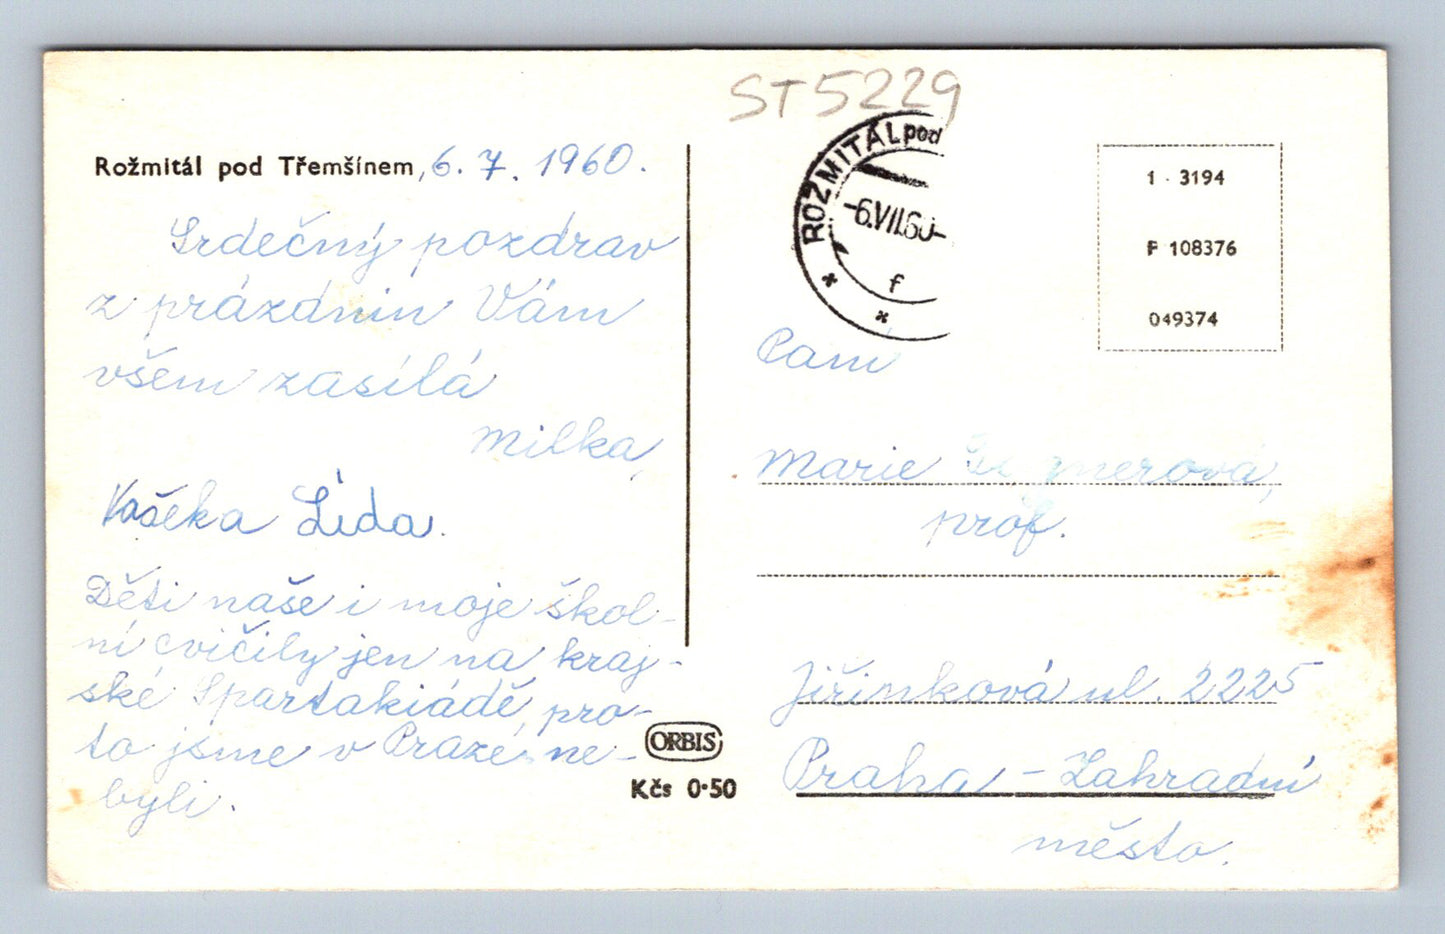 ST 5229
Rožmitál pod Třemšínem, 6. 7. 1960.
Srdečný pozdrav
z prázdnin Vám
všem zasílá
Milka,
Vašeka Lída.
Děti naše i moje škol-
ní cvičily jen na kraj-
ské Spartakiádě, pro-
to jsme v Praze ne-
byli.
ORBIS
Kčs 0·50
ROŽMITÁL pod
-6.VII.60-
f
1 · 3194
F 108376
049374
Paní
Marie
prof.
Jiřinková ul. 2225
Praha - Zahradní
město.